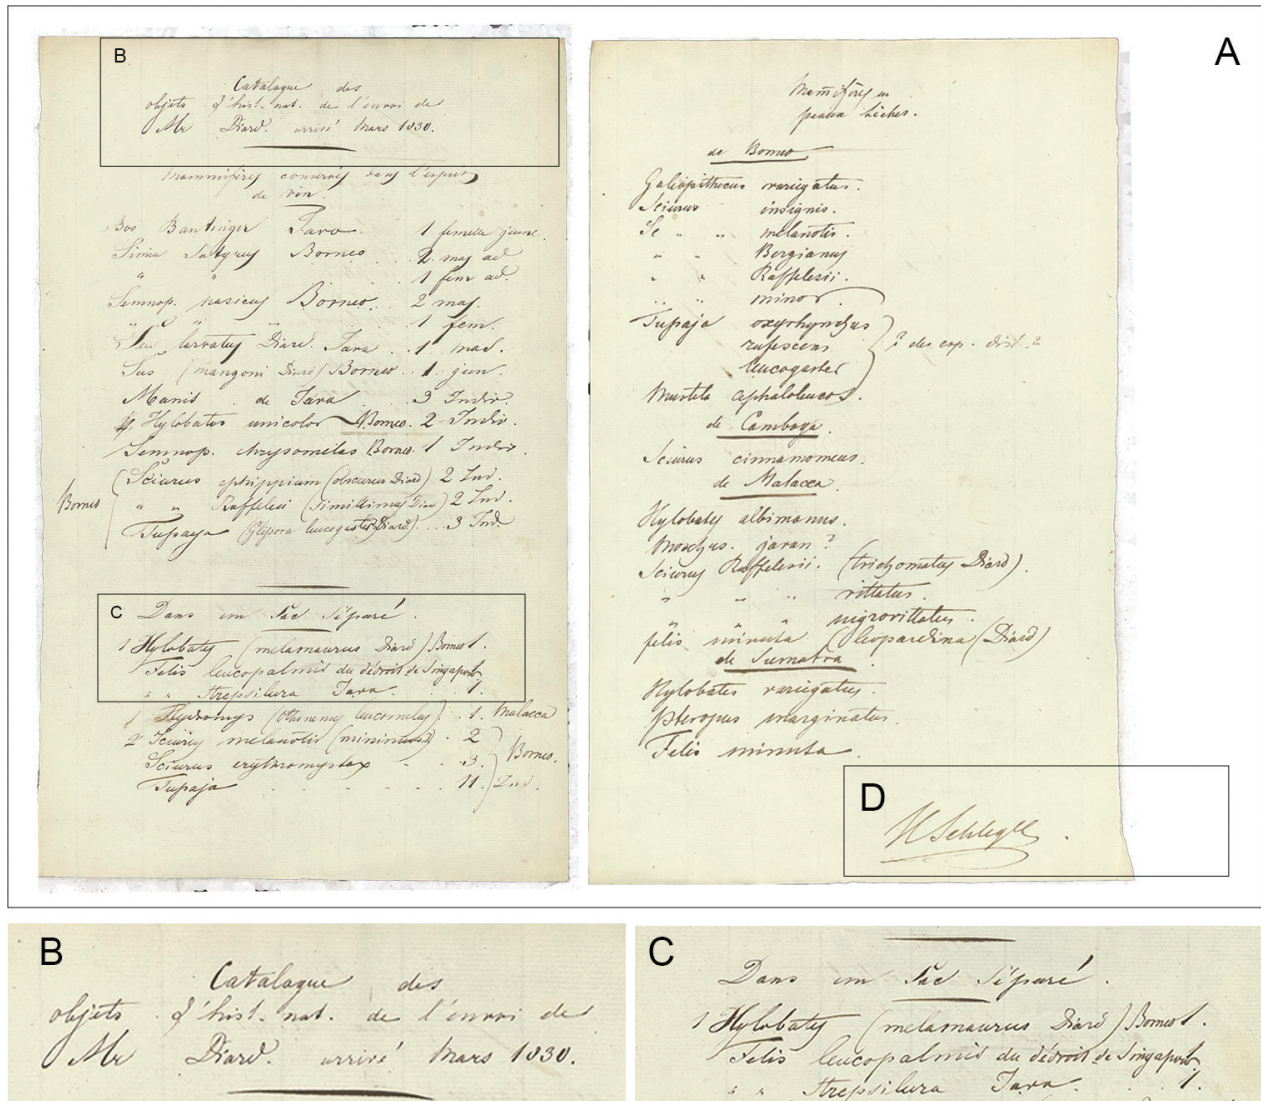 A
B
Catalogue des
objets d'hist. nat. de l'envoi de
Mr Diard. arrivé Mars 1830.
Mammifères conservés dans l'esprit
de vin.
Bos Bantinger Java 1 femelle jeune.
Simia Satyrus Borneo 2 mas ad
" " 1 fem ad.
Semnop. nasicus Borneo. 2 mas.
" " 1 fem.
larvatus Diard. Java . 1
Sus (mangoni Diard) Borneo . 1. jun.
Manis . de Java . 3 Indiv.
Hylobates unicolor Borneo. 2 Indiv.
Semnop. chrysomelas Borneo. 1 Indiv.
Sciurus ephippium (obscurus Diard) 2 Ind.
Borneo
" " Rafflesii (simillimus Diard) 2 Ind.
Tupaya (Glipora leucogaster Diard) ... 3 Ind.
C
Dans un Sac Séparé.
1 Hylobates (melamaurus Diard) Borneo 1.
Felis leucopalmis du détroit de Singapore
" " strepsilura Java . . 1.
1 Hydromys leucomelas) . 1. Malacca
2 Sciurus melanotis . 2
Borneo.
Sciurus erythromystax - - . 3.
Tupaja . . . . . . 11. Ind.
Mammifères en
peaux sèches.
de Borneo
Galiopithecus variegatus.
Sciurus insignis.
Sc " " melanotis.
" " Bergianus
" " Rafflesii.
" " minor.
Tupaja oxyrhynchus
rufescens
? des esp. dist. ?
leucogaster
Mustela cephaloleucos.
de Camboya.
Sciurus cinnamomeus.
de Malacca
Hylobates albimanus.
Moschus. javan ?
Sciurus Rafflesii. (trichomatus Diard).
" " " vittatus.
" " nigrovittatus.
felis minuta (leopardina (Diard)
de Sumatra.
Hylobates variegatus.
Pteropus marginatus.
Felis minuta
D
H Schlegel.
B
Catalogue des
objets d'hist. nat. de l'envoi de
Mr Diard. arrivé Mars 1830.
C
Dans un Sac Séparé.
1 Hylobates (melamaurus Diard) Borneo 1.
Felis leucopalmis du détroit de Singapore
" " strepsilura Java . . 1.